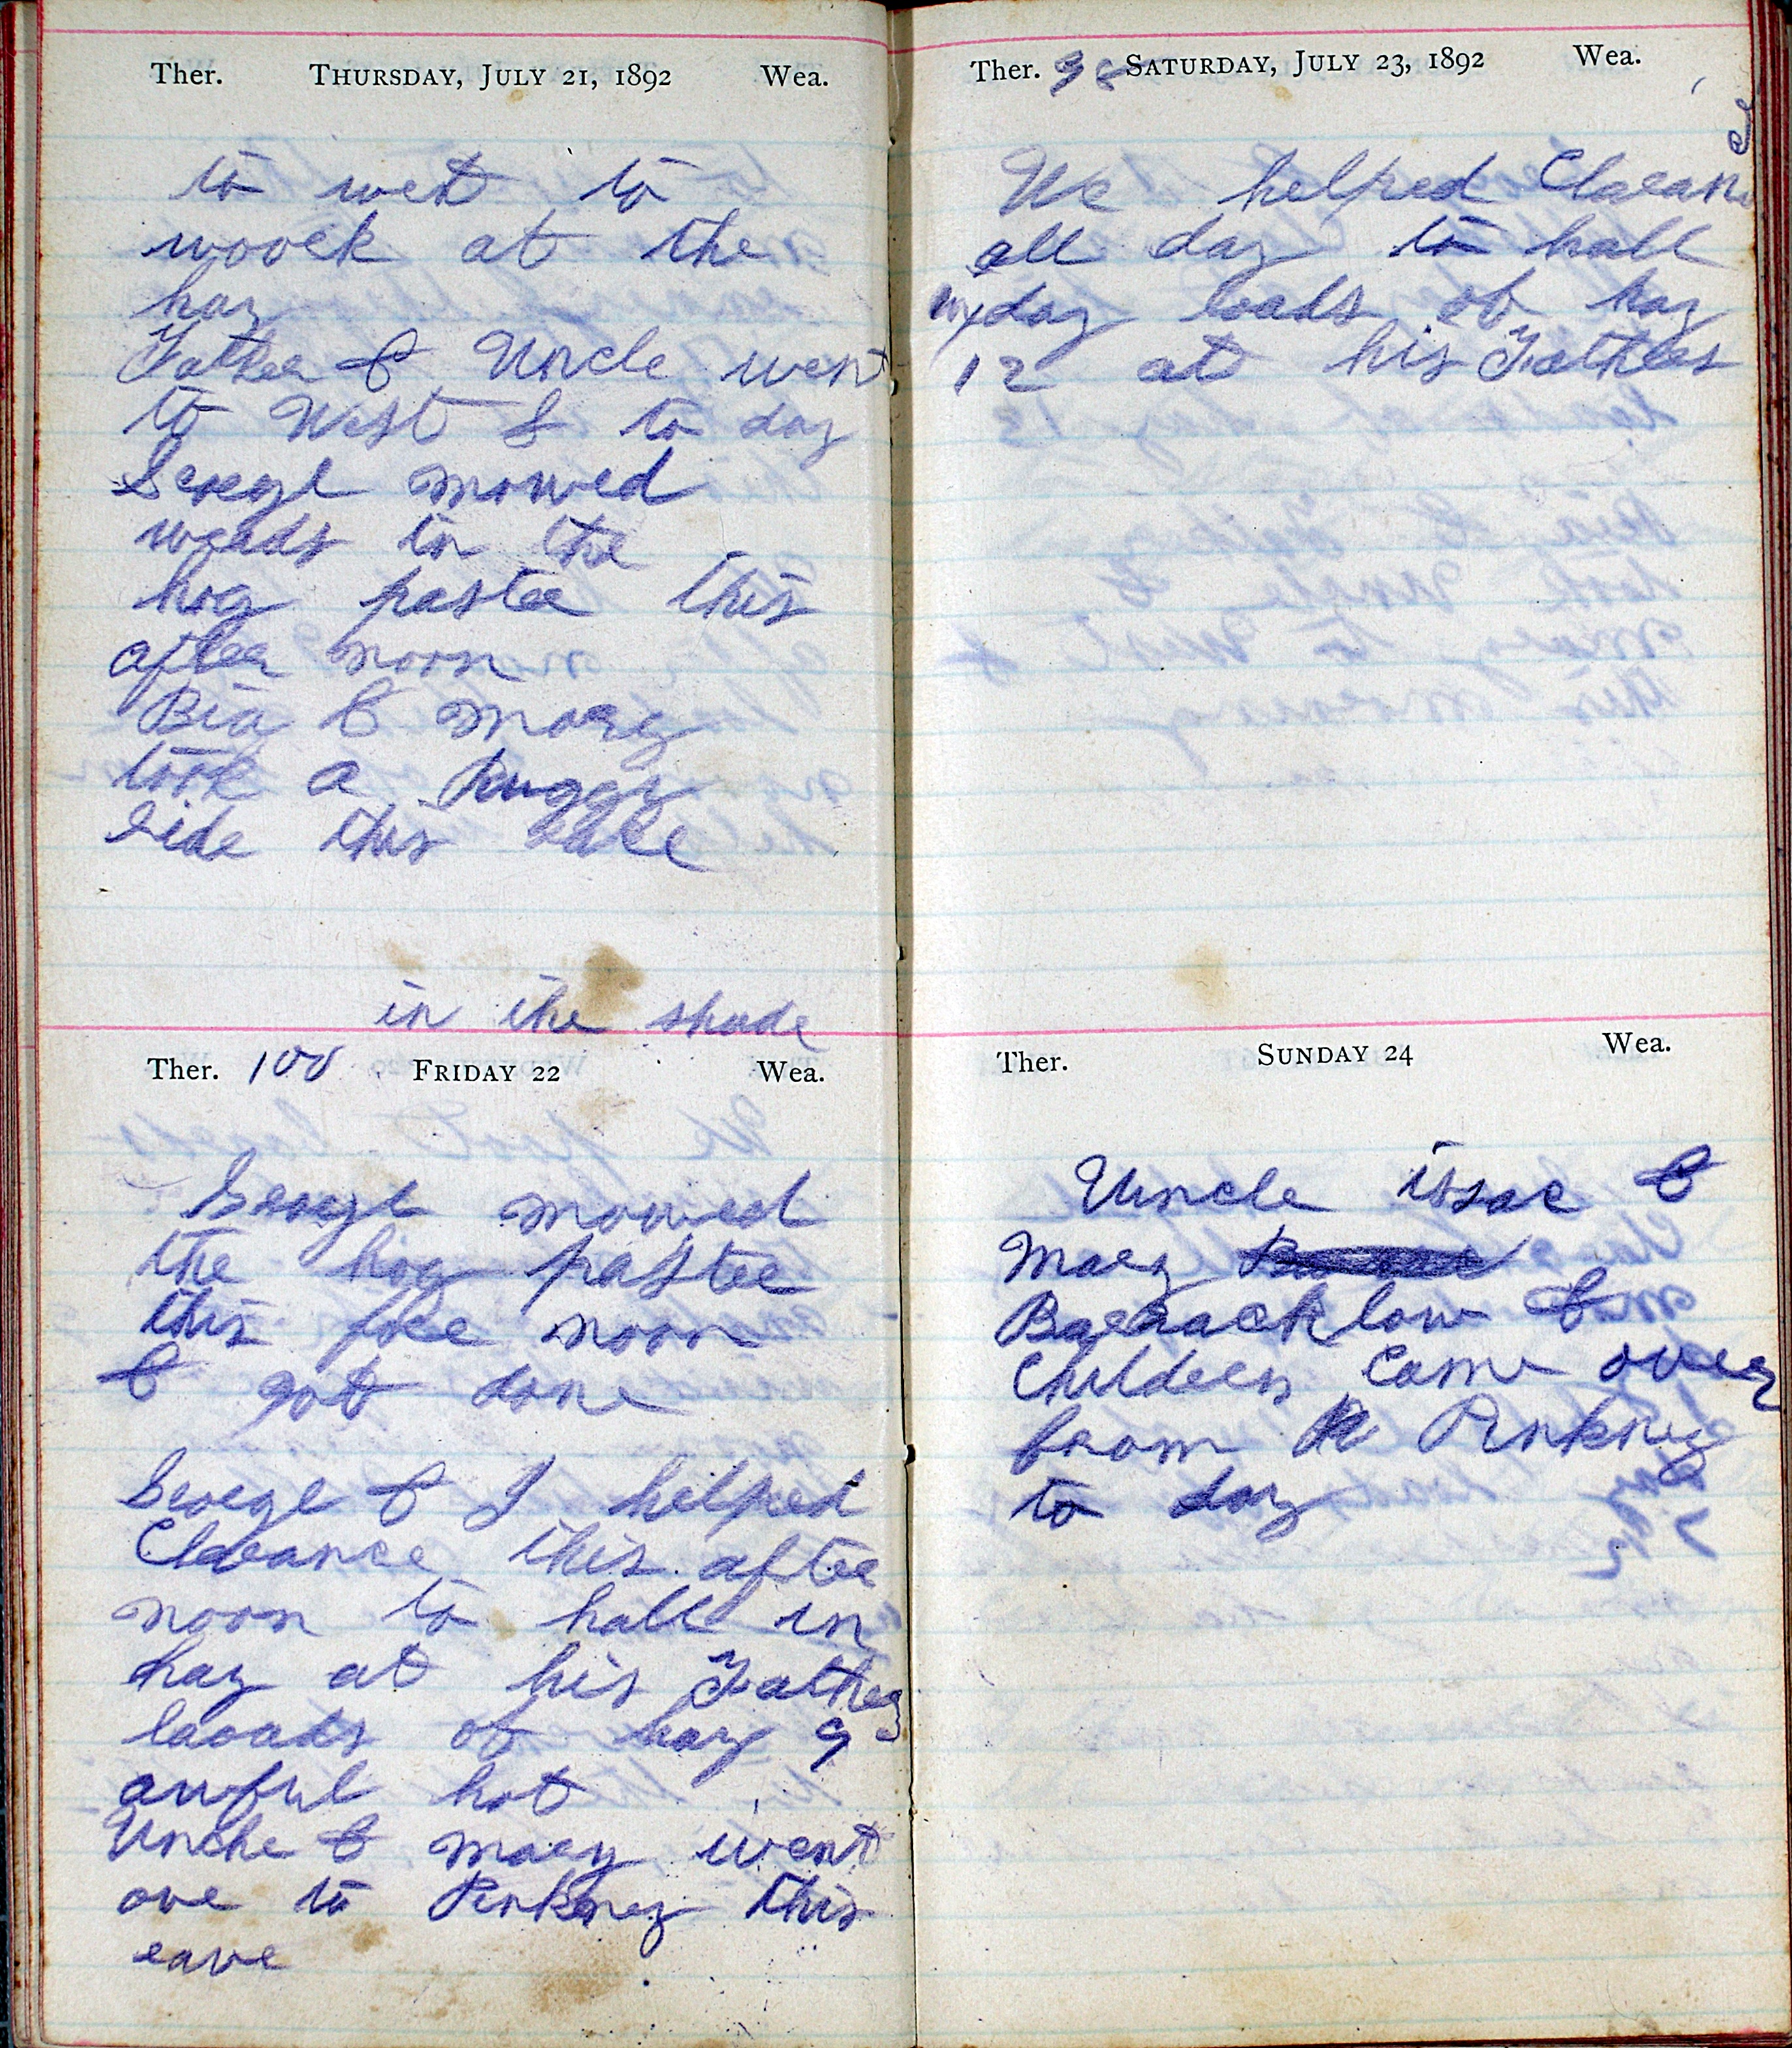 Ther. THURSDAY, JULY 21, 1892 Wea.
to wet to
woork at the
hay
Father & Uncle went
to West S to day
George mowed
weads in the
hog paster this
after noon
Bia & Mary
took a buggy
ride this eave
in the shade
Ther. 100 FRIDAY 22 Wea.
George mowed
the hog paster
this fore noon
& got done
George & I helped
Clarance this after
noon to hall in
hay at his Father
laoads of hay 9
awful hot
Uncle & Mary went
ove to Pinkney this
eave
Ther. 98 SATURDAY, JULY 23, 1892 Wea.
We helped Clarance
all day to hall
hay loads of hay
12 at his Fathers
Ther. SUNDAY 24 Wea.
Uncle issac &
Mary
Barracklow &
Children Came over
from Pinkney
to day